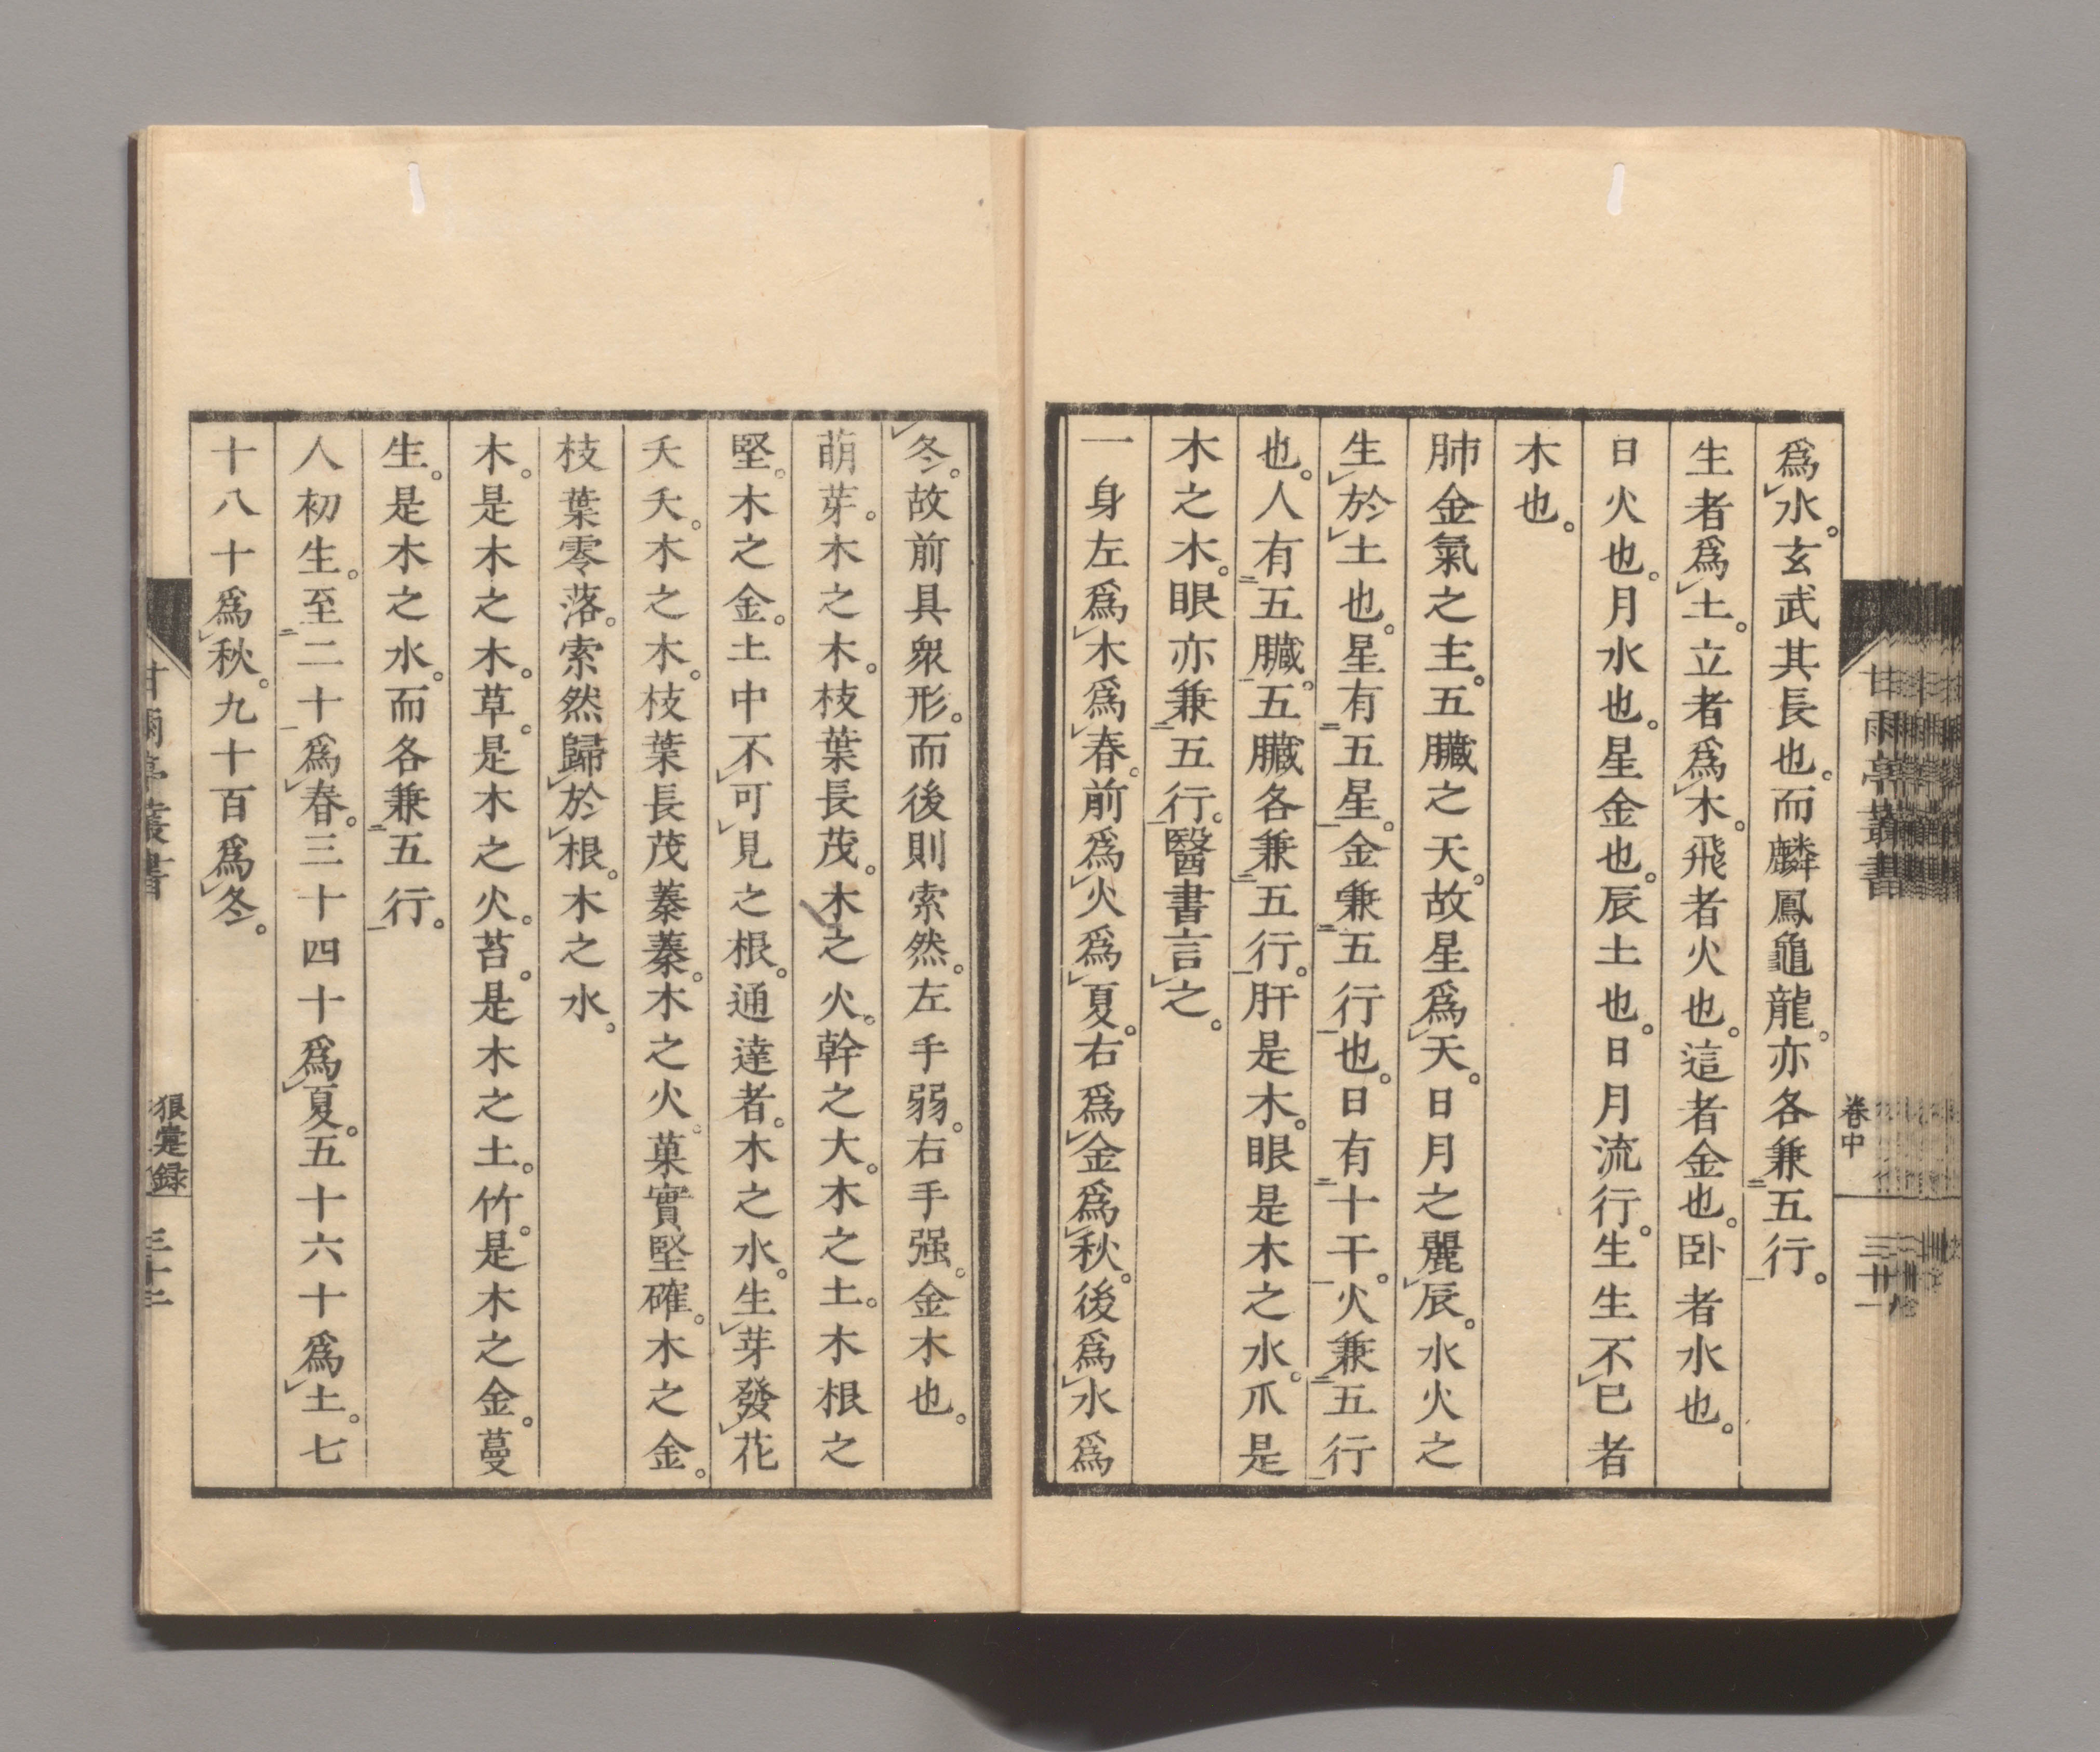 爲水。玄武其長也。而麟鳳龜龍。亦各兼五行。
生者爲土。立者爲木。飛者火也。這者金也。臥者水也。
日火也。月水也。星金也。辰土也。日月流行。生生不已者
木也。
肺金氣之主。五臟之天。故星爲天。日月之麗辰。水火之
生於土也。星有五星。金兼五行也。日有十干。火兼五行
也。人有五臟。五臟各兼五行。肝是木。眼是木之水。爪是
木之木。眼亦兼五行。醫書言之。
一身左爲木爲春。前爲火爲夏。右爲金爲秋。後爲水爲
甘雨亭叢書
卷中
三十一
冬。故前具衆形。而後則索然。左手弱。右手强。金木也。
萌芽。木之木。枝葉長茂。木之火。幹之大。木之土。木根之
堅。木之金。土中不可見之根。通達者。木之水。生芽發花
夭夭。木之木。枝葉長茂蓁蓁。木之火。菓實堅確。木之金。
枝葉零落。索然歸於根。木之水。
木。是木之木。草。是木之火。苔。是木之土。竹。是木之金。蔓
生。是木之水。而各兼五行。
人初生。至二十爲春。三十四十爲夏。五十六十爲土。七
十八十爲秋。九十百爲冬。
甘雨亭叢書
狼疐録
三十二